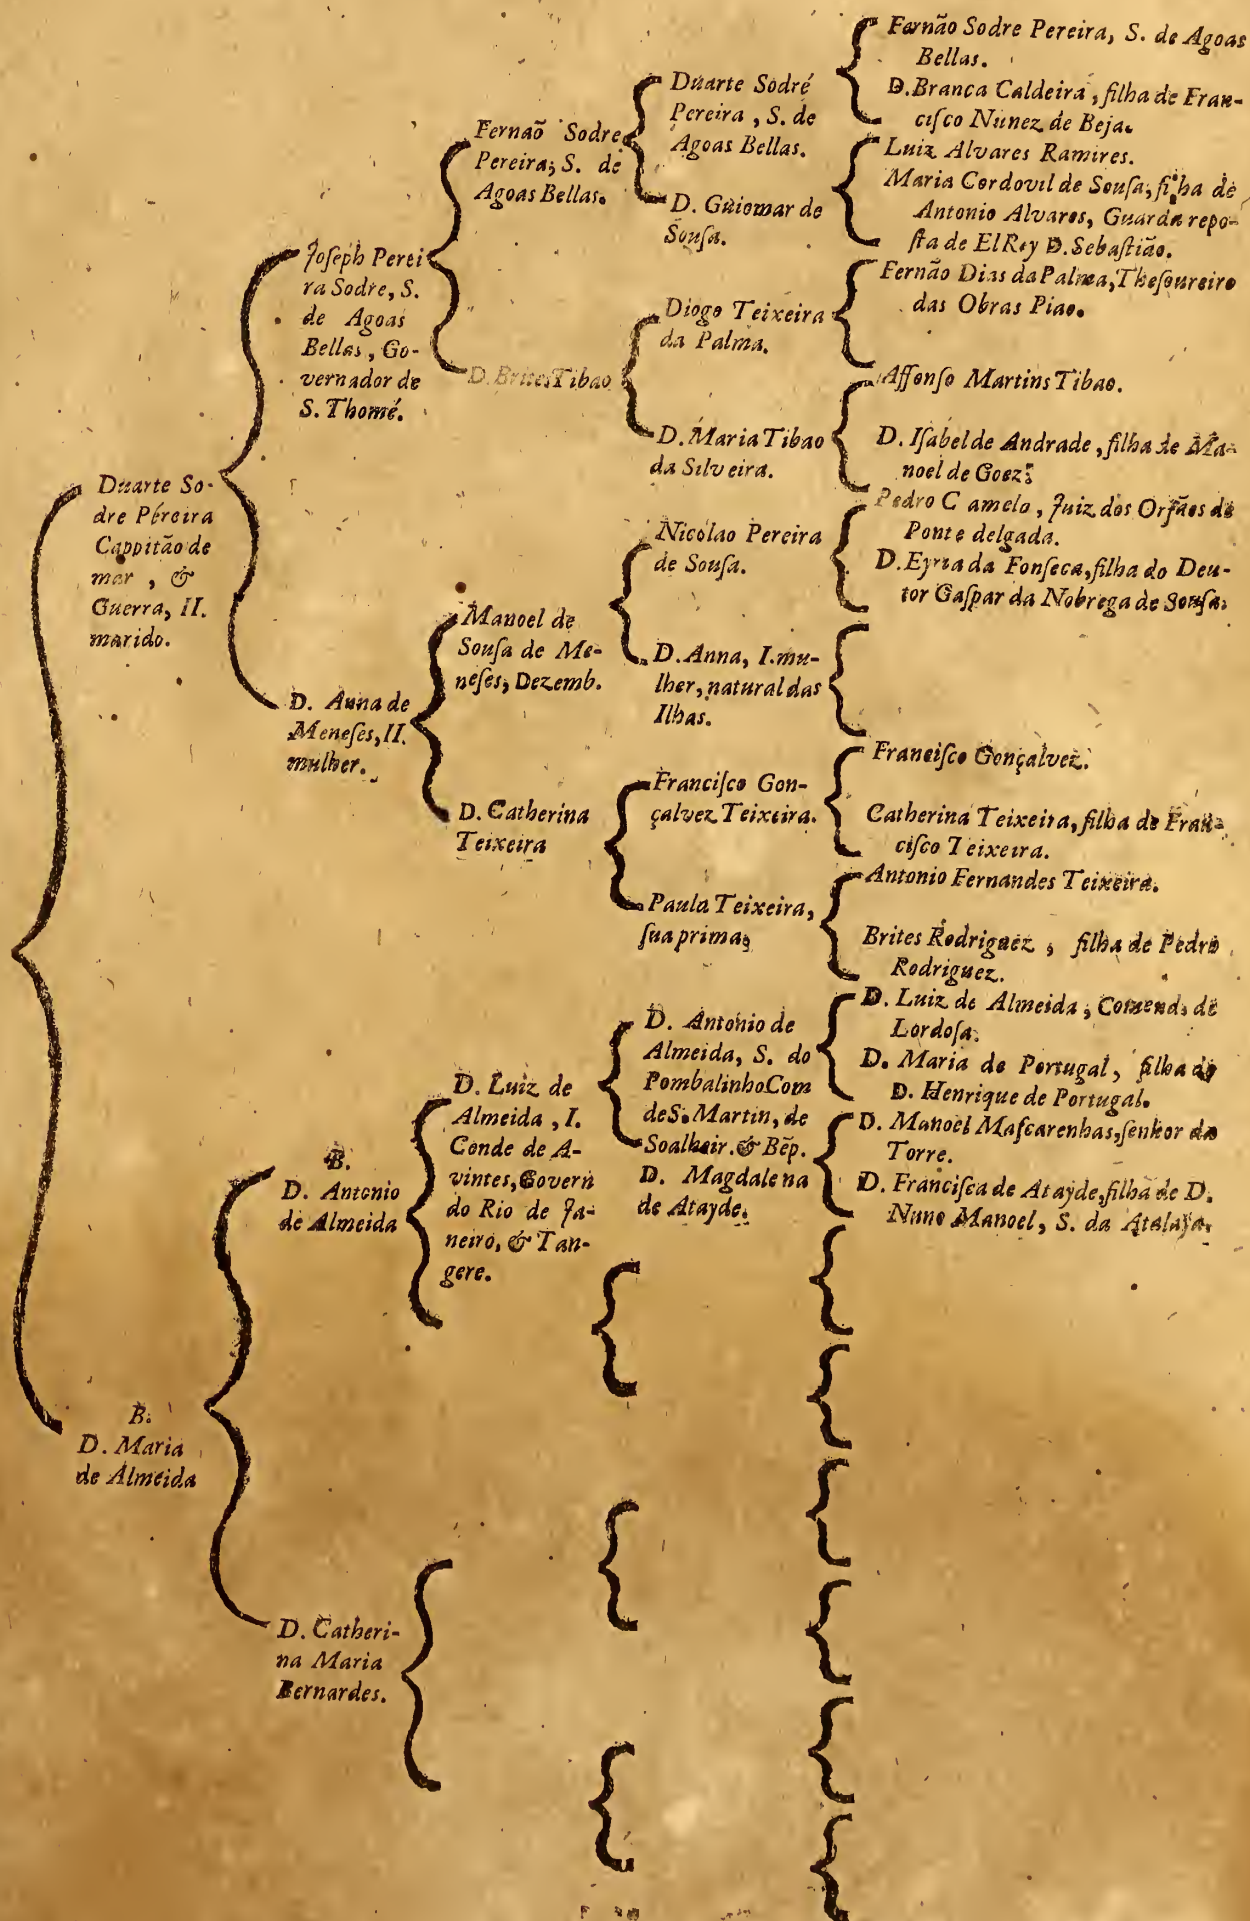 Duarte So-
dre Pereira
Cappitão de
mar, &
Guerra, II.
marido.
B.
D. Maria
de Almeida
Joseph Perei
ra Sodre, S.
de Agoas
Bellas, Go-
vernador de
S. Thomé.
D. Anna de
Meneses, II.
mulher.
B.
D. Antonio
de Almeida
D. Catheri-
na Maria
Bernardes.
Fernaõ Sodre
Pereira, S. de
Agoas Bellas.
D. Brites Tibao
Manoel de
Sousa de Me-
neses, Dezemb.
D. Catherina
Teixeira
D. Luiz de
Almeida, I.
Conde de A-
vintes, Govern
do Rio de Ja-
neiro, & Tan-
gere.
Duarte Sodré
Pereira, S. de
Agoas Bellas.
D. Guiomar de
Sousa.
Diogo Teixeira
da Palma.
D. Maria Tibao
da Silveira.
Nicolao Pereira
de Sousa.
D. Anna, I. mu-
lher, natural das
Ilhas.
Francisco Gon-
çalvez Teixeira.
Paula Teixeira,
sua prima,
D. Antonio de
Almeida, S. do
Pombalinho Com
de S. Martin, de
Soalheir. & Bẽp.
D. Magdalena
de Atayde.
Fernão Sodre Pereira, S. de Agoas
Bellas.
D. Branca Caldeira, filha de Fran-
cisco Nunez de Beja.
Luiz Alvares Ramires.
Maria Cordovil de Sousa, filha de
Antonio Alvares, Guarda repo-
sta de ElRey D. Sebastião.
Fernão Dias da Palma, Thesoureiro
das Obras Piao.
Affonso Martins Tibao.
D. Isabel de Andrade, filha de Ma-
noel de Goez.
Pedro Camelo, Juiz dos Orfãos de
Ponte delgada.
D. Eyria da Fonseca, filha do Deu-
tor Gaspar da Nobrega de Sousa.
Francisco Gonçalvez.
Catherina Teixeira, filha de Fran-
cisco Teixeira.
Antonio Fernandes Teixeira.
Brites Rodriguez, filha de Pedro
Rodriguez.
D. Luiz de Almeida, Comend. de
Lordosa.
D. Maria de Portugal, filha de
D. Henrique de Portugal.
D. Manoel Mascarenhas, senhor da
Torre.
D. Francisca de Atayde, filha de D.
Nuno Manoel, S. da Atalaya.